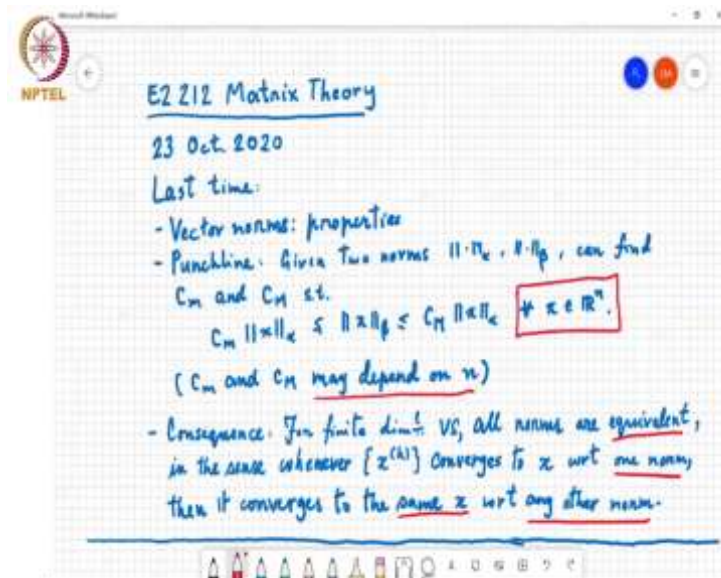 NPTEL
E2 212 Matrix Theory
23 Oct 2020
Last time:
- Vector norms: properties
- Punchline. Given Two norms ||·||α, ||·||β, can find
Cm and CM s.t.
Cm ||x||α ≤ ||x||β ≤ CM ||x||α ∀ x ∈ ℝⁿ.
(Cm and CM may depend on n)
- Consequence. For finite diml. VS, all norms are equivalent,
in the sense whenever {x^(k)} converges to x wrt one norm,
then it converges to the same x wrt any other norm.